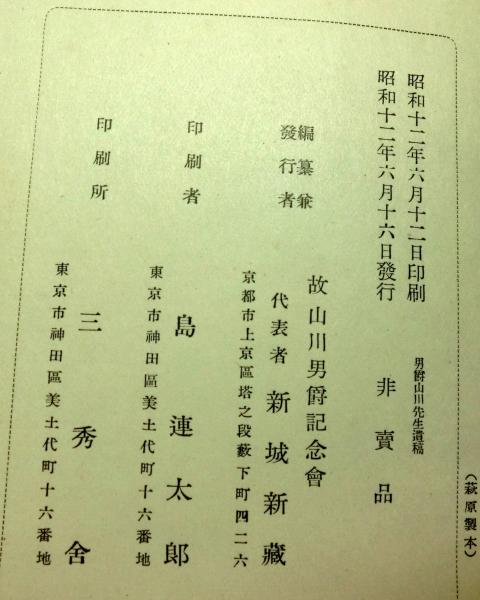 昭和十二年六月十二日印刷
昭和十二年六月十六日發行
男爵山川先生遺稿
非賣品
編纂兼
發行者
故山川男爵記念會
代表者 新城新藏
京都市上京區塔之段藪下町四二六
印刷者
島連太郎
東京市神田區美土代町十六番地
印刷所
三秀舍
東京市神田區美土代町十六番地
（萩原製本）